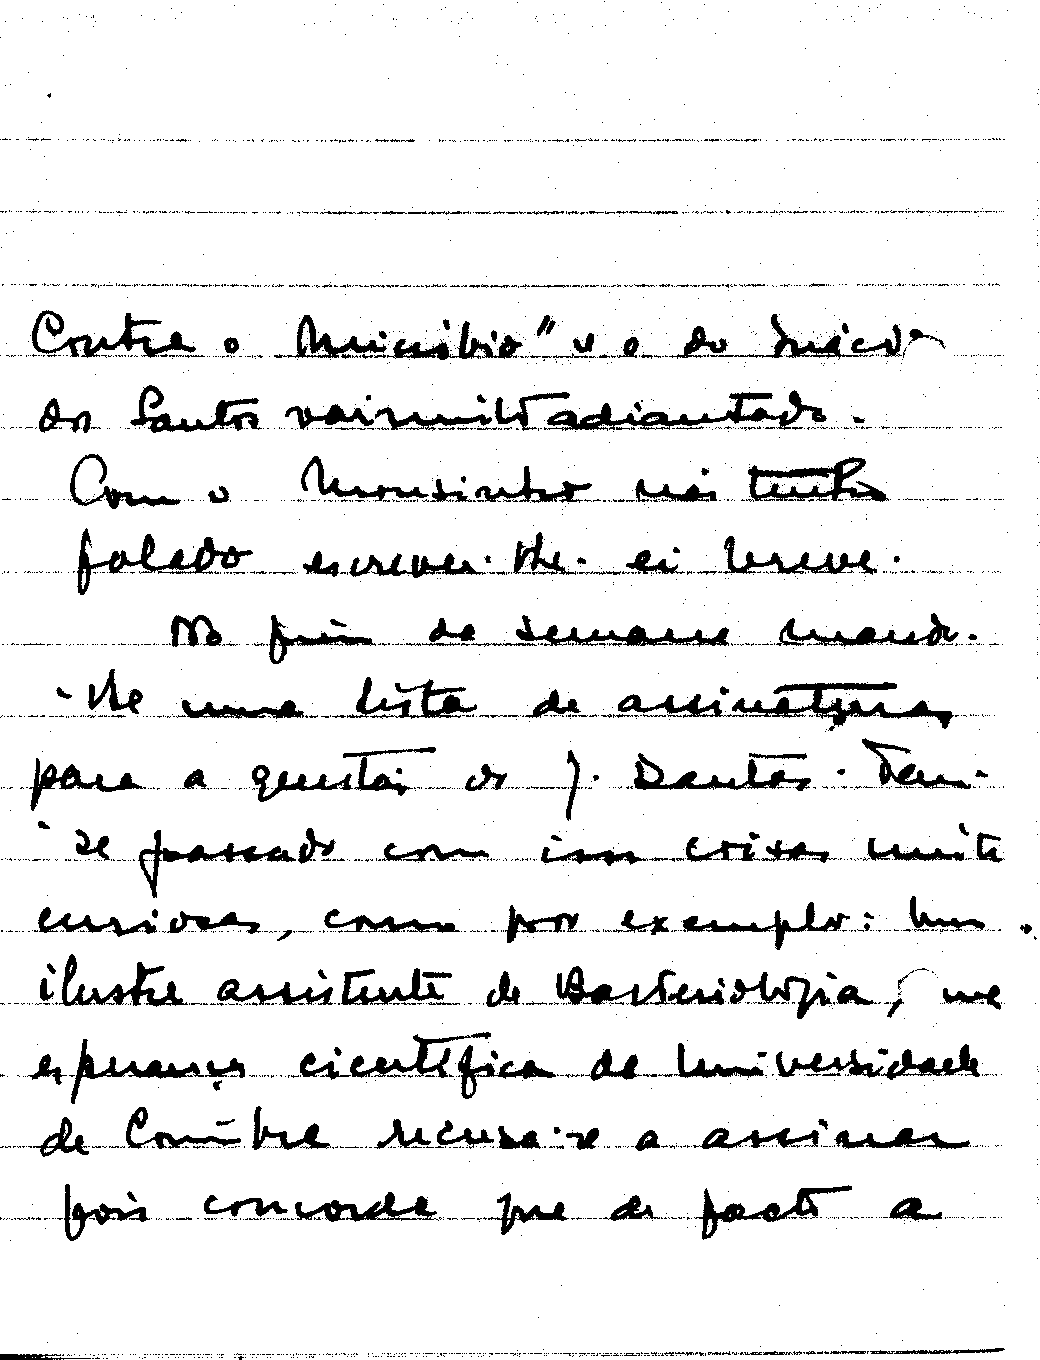 Contra o Micróbio" e o do Inácio
dos Santos vai muito adiantado.
Com o Monsinho não tenho
falado escrever-lhe-ei breve.
No fim da semana mando-
-lhe uma lista de assinaturas
para a questão do J. Dantas. Tem-
-se passado com isso coisas muito
curiosas, como por exemplo: Um
ilustre assistente de Bacteriologia, uma
esperança científica da Universidade
de Coimbra recusa-se a assinar
pois concorda que de facto a